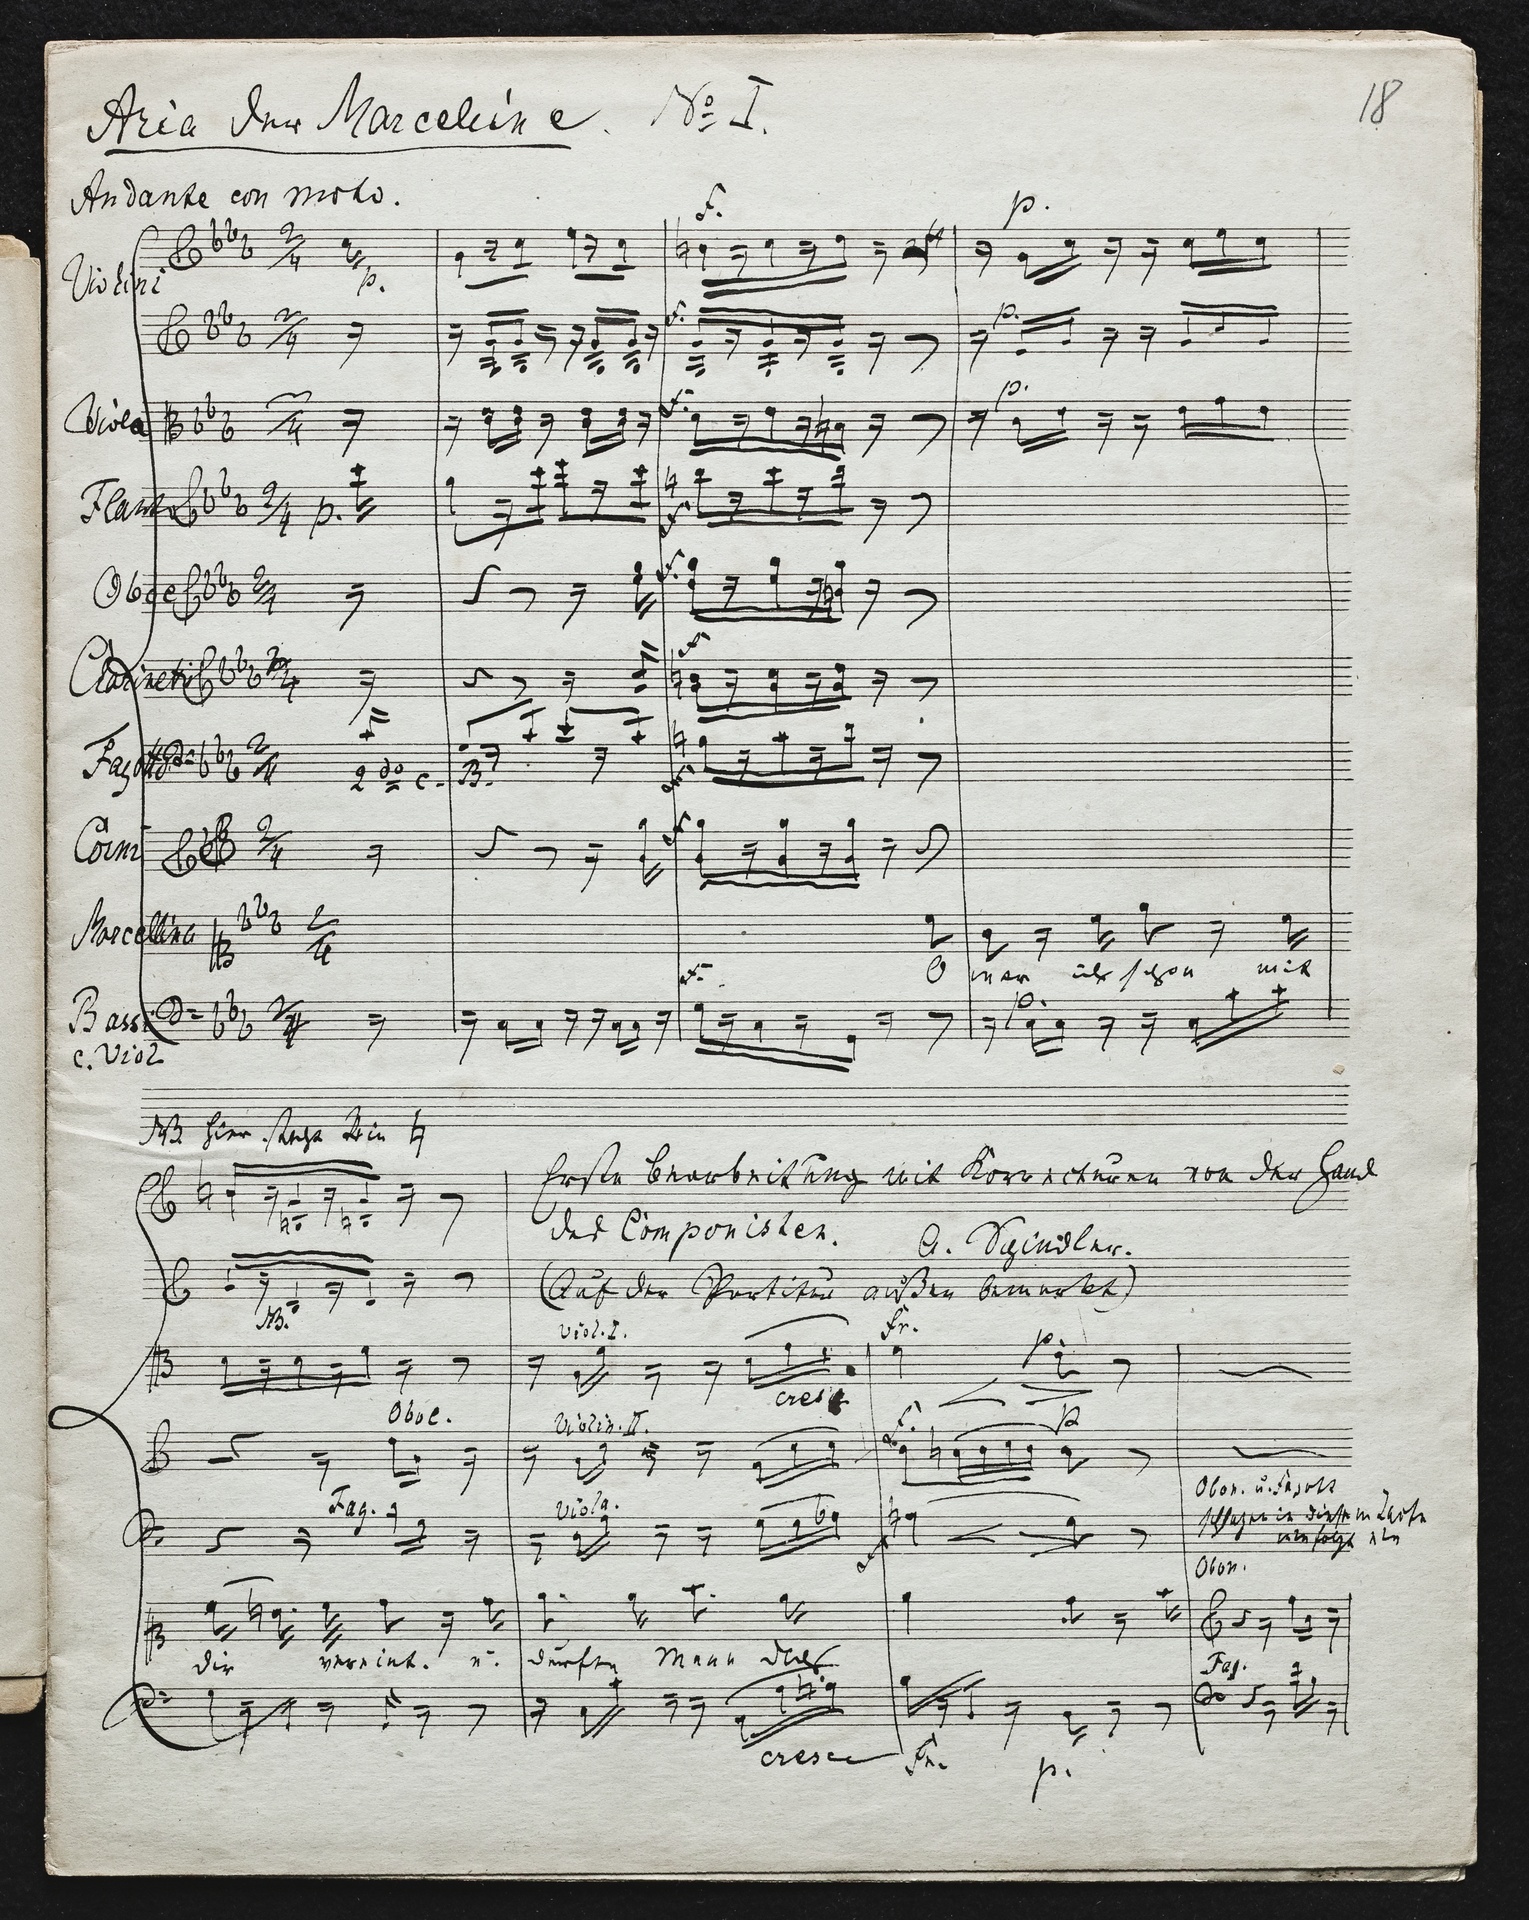 18
Aria der Marcelline. No I.
Andante con moto.
f. p.
Violini p.
f. p.
Viola f. p.
Flauti p. f
Oboe f.
Clarinetti f
Fagotti 2do c. B. f
Corni f
Marcellina
O wär ich schon mit
f. p.
Bassi
c. Viol
NB hier steht kein ♮
Erste Bearbeitung mit Korrecturen von der Hand
des Componisten. A. Schindler.
(Auf der Partitur außen bemerkt)
NB.
Viol. I. fr. p.
cresc
Oboe. Violin. II. f. p
Fag. Viola. f
Oboe. u. Fagott
schlagen in diesem Takte
Oboe.
dir vereint. u. dürfte Mann dich
Fag.
cresc fr. p.